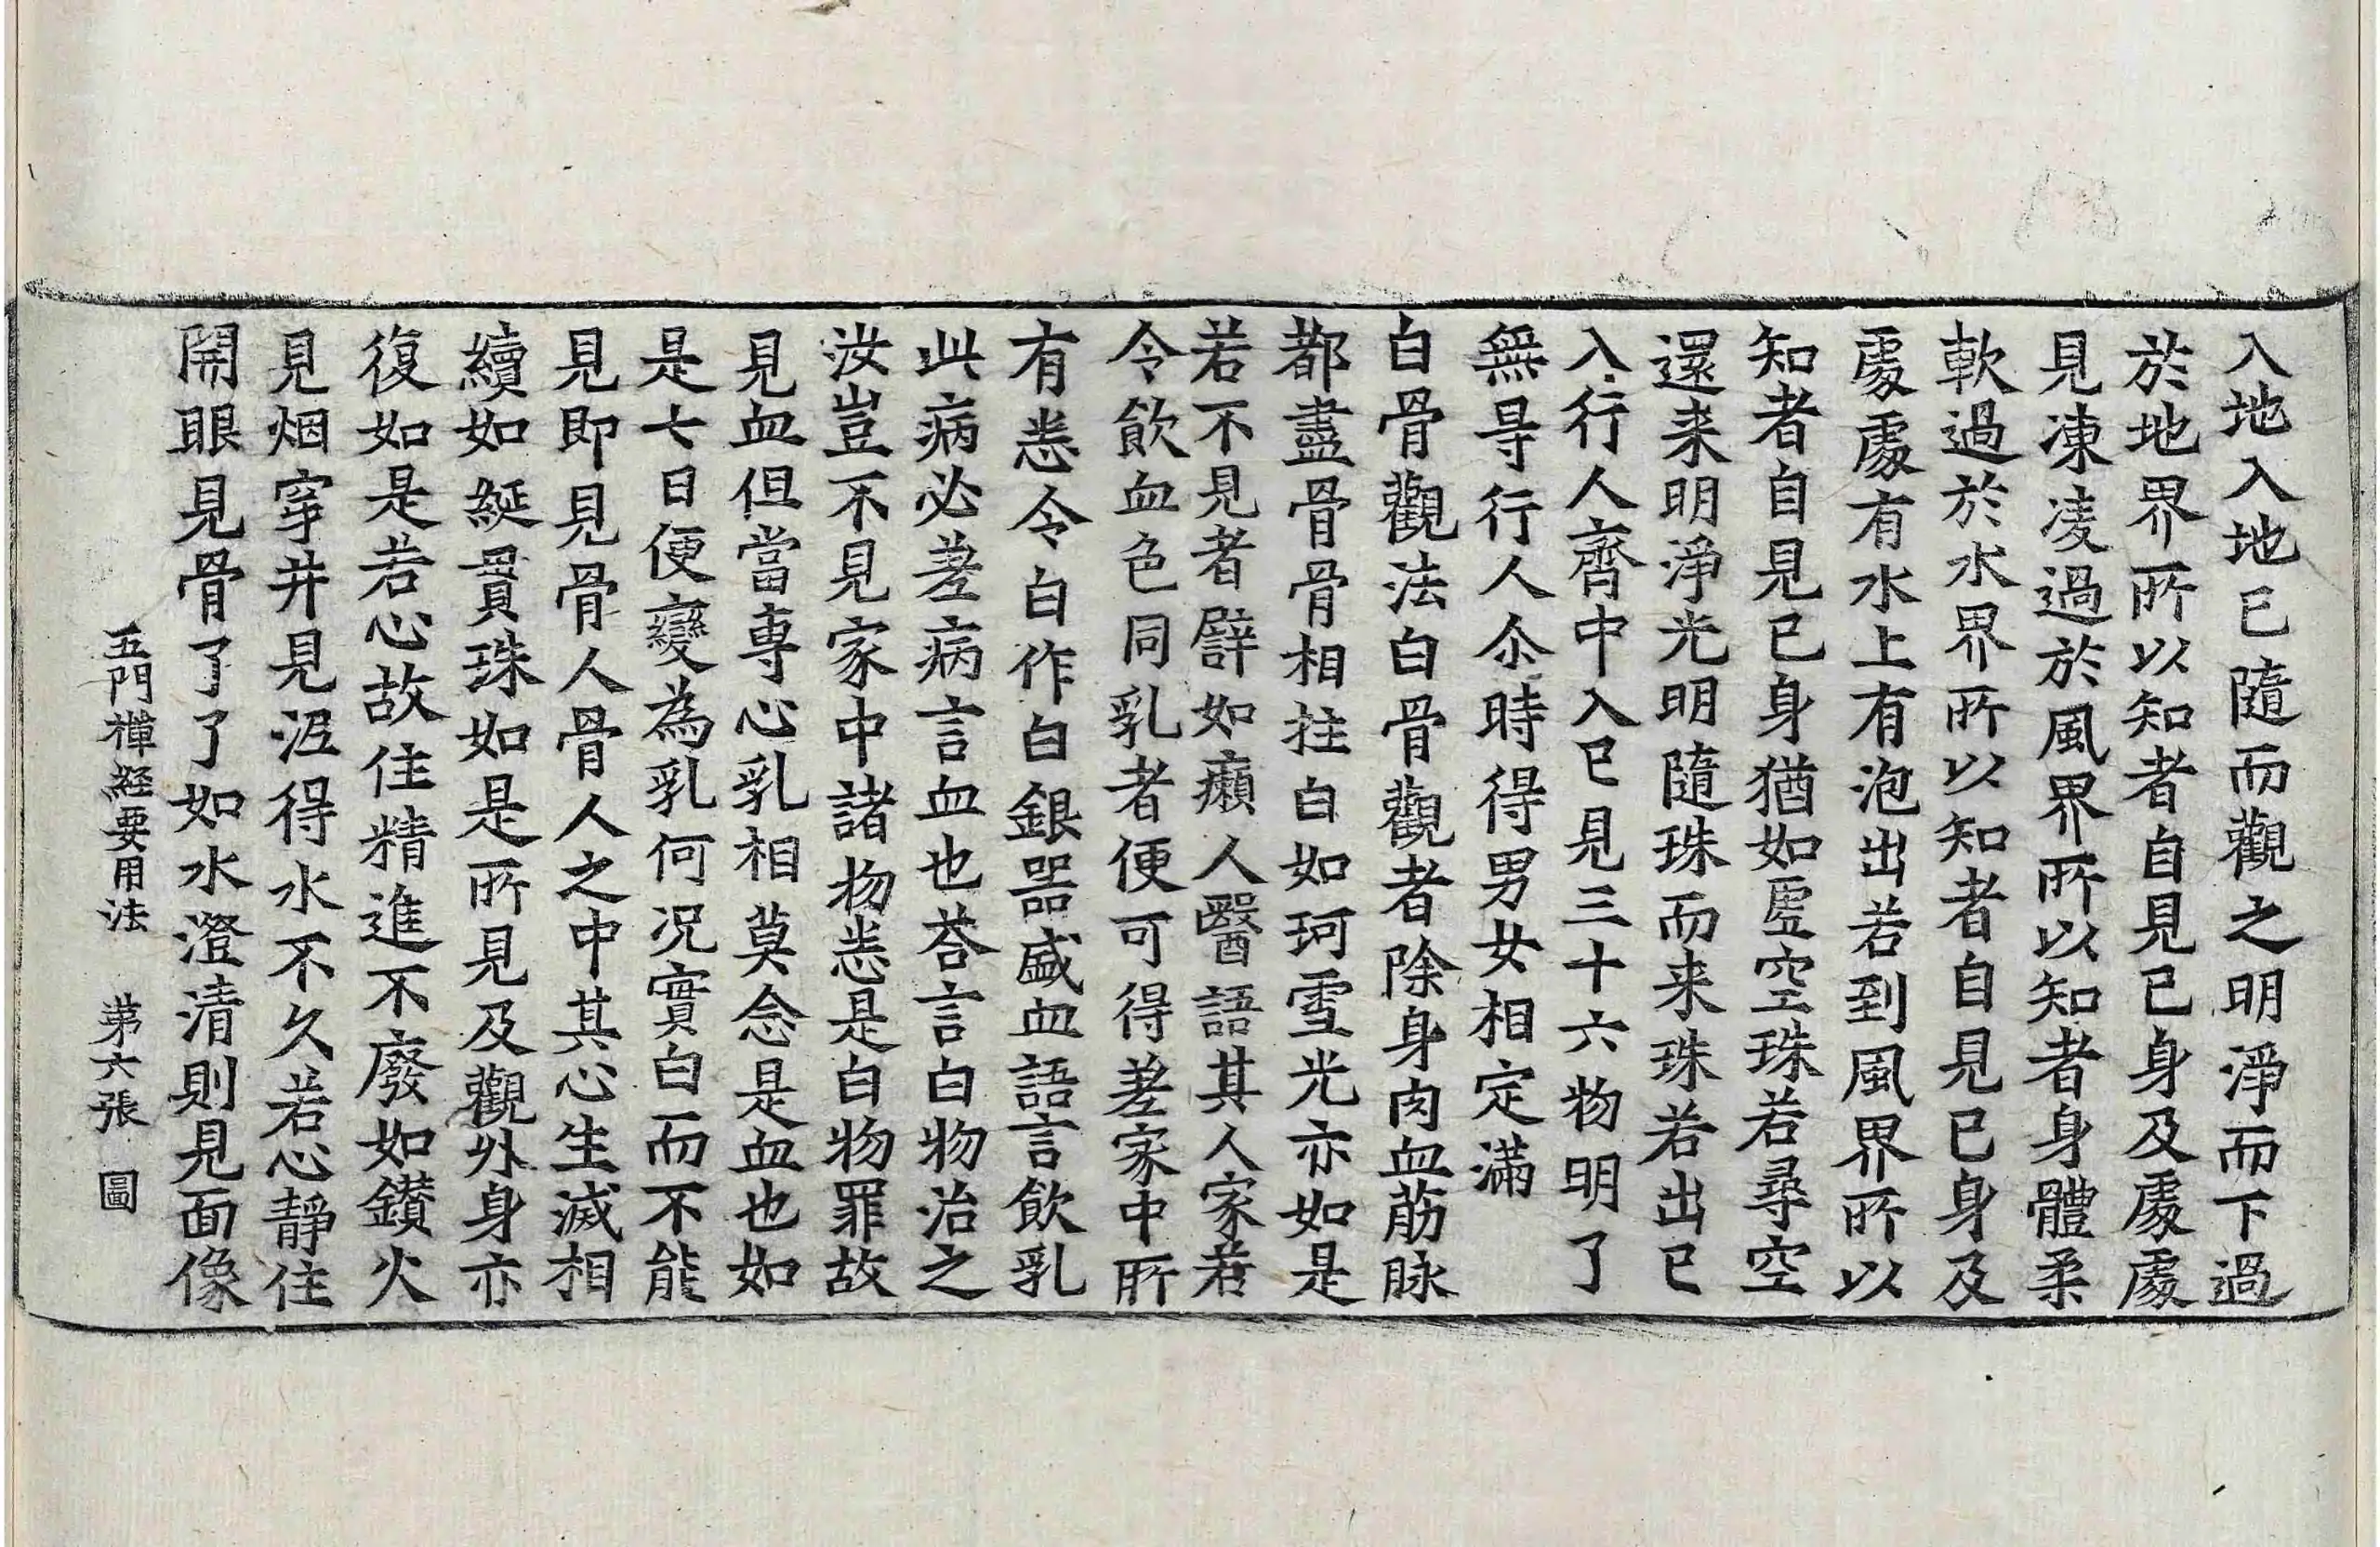 入地入地已隨而觀之明淨而下過
於地界所以知者自見已身及處處
見凍凌過於風界所以知者身體柔
軟過於水界所以知者自見已身及
處處有水上有泡出若到風界所以
知者自見已身猶如虛空珠若尋空
還来明淨光明隨珠而来珠若出已
入行人齊中入已見三十六物明了
無㝵行人尒時得男女相定滿
白骨觀法白骨觀者除身肉血荕脉
都盡骨骨相拄白如珂雪光亦如是
若不見者譬如癩人醫語其人家若
令飲血色同乳者便可得差家中所
有悉令白作白銀器盛血語言飲乳
此病必差病言血也荅言白物治之
汝豈不見家中諸物悉是白物罪故
見血但當専心乳相莫念是血也如
是七日便變為乳何况實白而不能
見即見骨人骨人之中其心生滅相
續如綖貫珠如是所見及觀外身亦
復如是若心故住精進不廢如鑚火
見烟穿井見泥得水不久若心靜住
開眼見骨了了如水澄清則見面像
五門禪経要用法 苐六張 圖